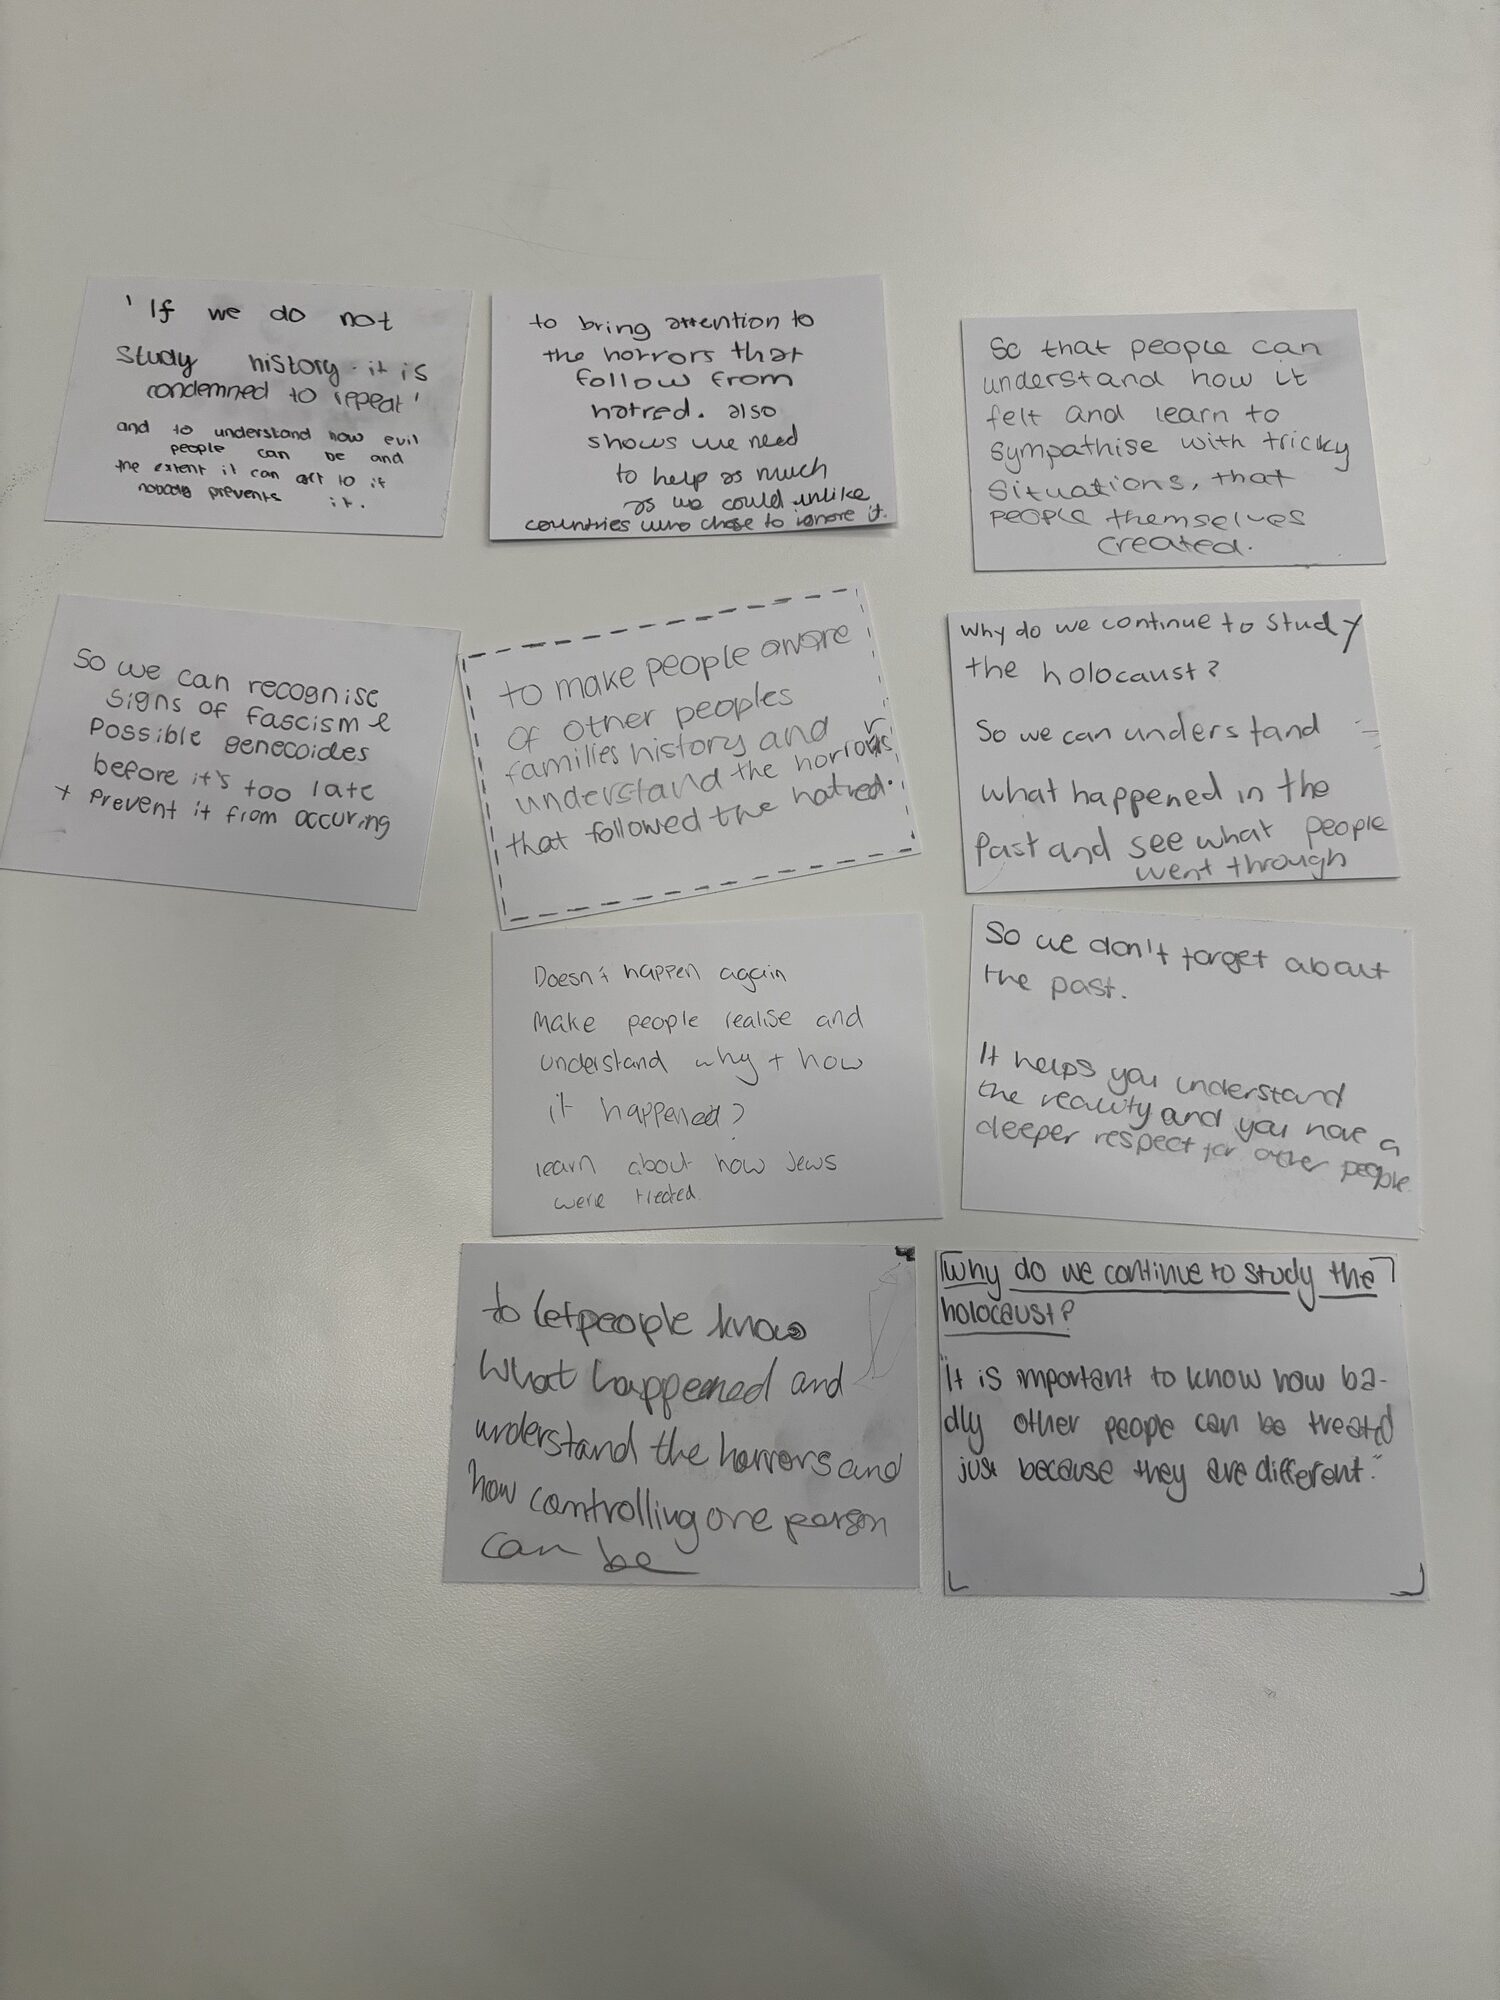 'If we do not
study history it is
condemned to repeat'
and to understand how evil
people can be and
the extent it can get to if
nobody prevents it.
to bring attention to
the horrors that
follow from
hatred. also
shows we need
to help as much
as we could unlike
countries who chose to ignore it.
So that people can
understand how it
felt and learn to
sympathise with tricky
situations, that
people themselves
created.
So we can recognise
signs of fascism &
possible genecoides
before it's too late
+ prevent it from occuring
to make people aware
of other peoples
families history and
understand the horrors
that followed the hatred.
Why do we continue to study
the holocaust?
So we can understand
what happened in the
past and see what people
went through
Doesn't happen again
Make people realise and
understand why + how
it happened?
learn about how Jews
were treated.
So we don't forget about
the past.
It helps you understand
the reality and you have a
deeper respect for other people.
to let people know
what happened and
understand the horrors and
how controlling one person
can be
Why do we continue to study the
holocaust?
"It is important to know how ba-
dly other people can be treated
just because they are different."